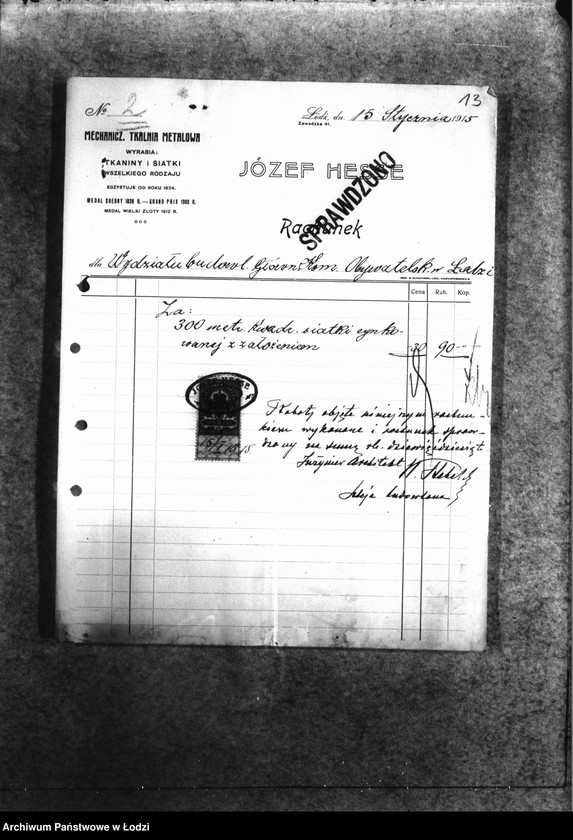 13
No 2
Łódź, dn. 15 Stycznia 1915
Zawadzka 41.
MECHANICZ. TKALNIA METALOWA
WYRABIA:
TKANINY i SIATKI
WSZELKIEGO RODZAJU
EGZYSTUJE OD ROKU 1834.
MEDAL SREBRNY 1839 R. — GRAND PRIX 1908 R.
MEDAL WIELKI ZŁOTY 1912 R.
JÓZEF HESSE
SPRAWDZONO
Rachunek
dla Wydziału budowl. Główn. Kom. Obywatelsk. w Łodzi
Cena Rub. Kop.
Za:
300 metr. kwadr. siatki cynko-
wanej z założeniem 30 90 —
15/I 1915.
Roboty objęte niniejszym rachun-
kiem wykonane i rachunek spraw-
dzony na sumę rb. dziewięćdziesiąt
Inżynier Architekt
Sekcja budowlana
Archiwum Państwowe w Łodzi